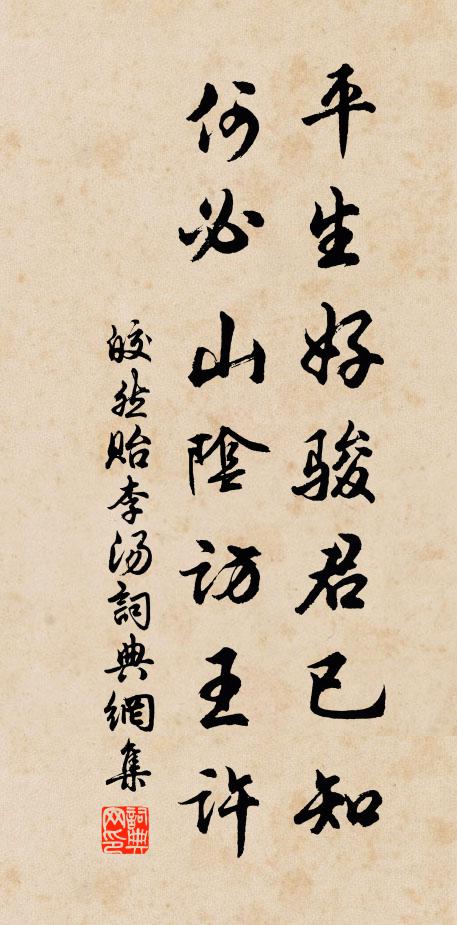 平生好骏君已知
何必山陰访王许
皎然贻李汤詞典網集
詞典网印